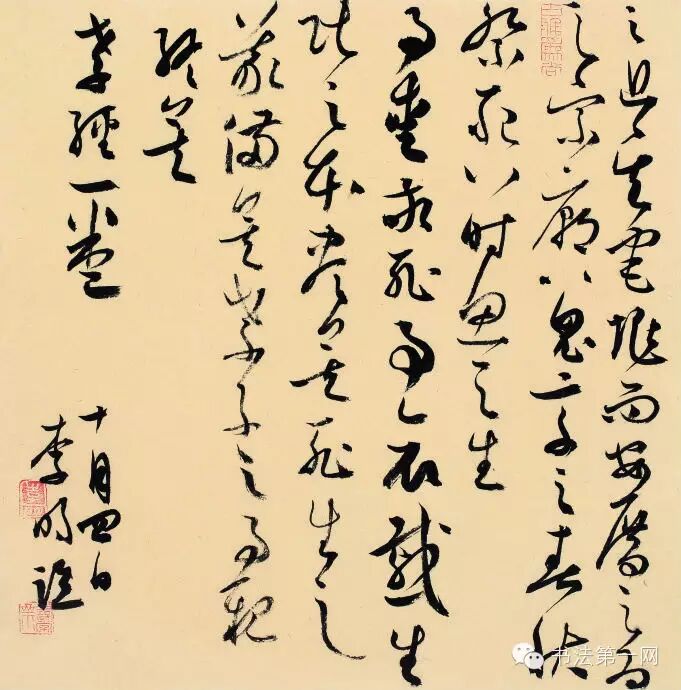 之其宅兆而安厝之為
之宗廟以鬼享之春秋
祭祀以時思之生
事愛敬死事哀慼生
民之本盡矣死生之
義備矣孝子之事親
終矣
孝經一卷
十月四日
李明
书法第一网